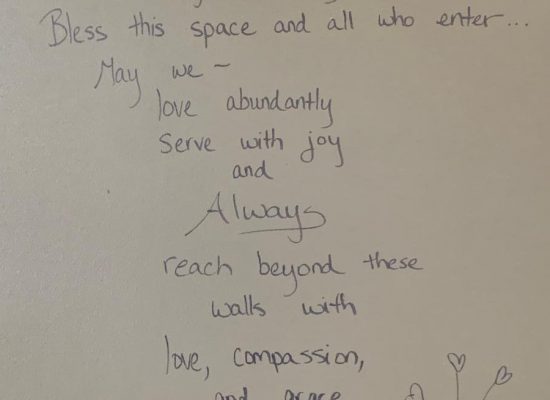 Bless this space and all who enter...
May we ~
love abundantly
serve with joy
and
Always
reach beyond these
walls with
love, compassion,
and grace